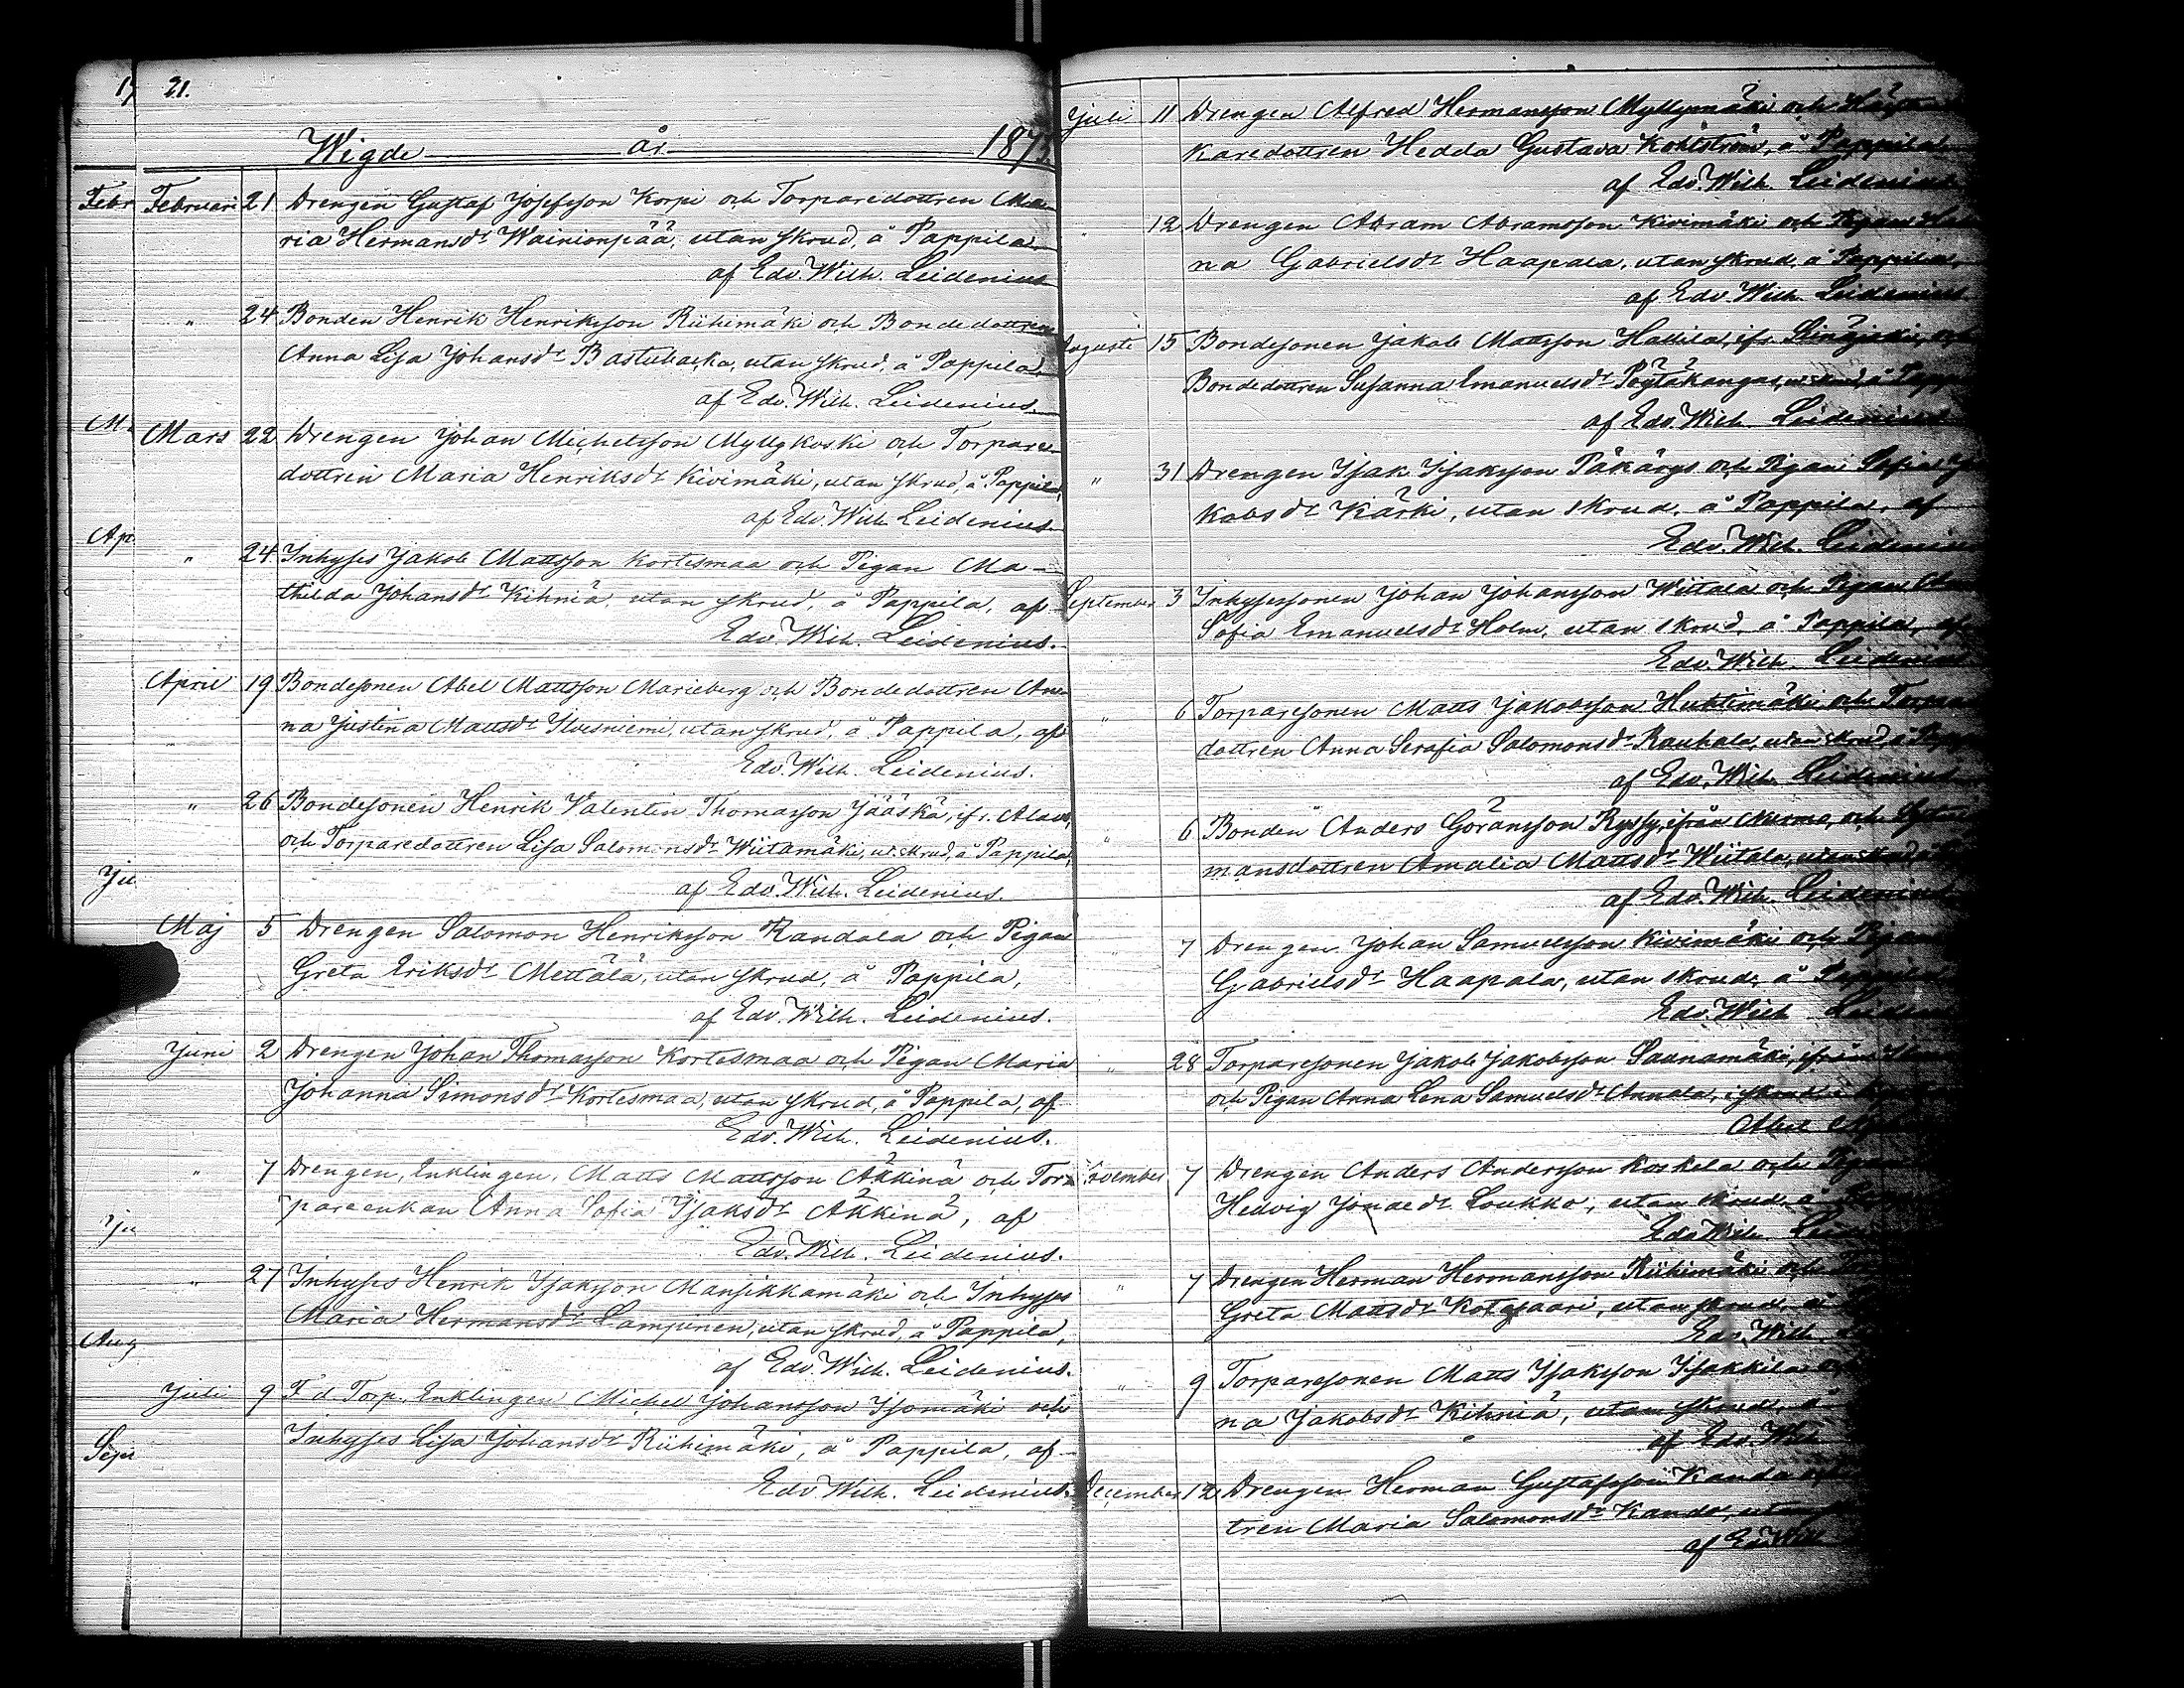 21.
Wigde år 187
Februari 21 Drengen Gustaf Josefsson Korpi och Torparedottren Ma-
ria Hermansdr Wainionpää, utan skrud, å Pappila
af Edv. Wilh. Leidenius
" 24 Bonden Henrik Henriksson Riihimäki och Bondedottren
Anna Lisa Johansdr Bastubacka, utan skrud, å Pappila,
af Edv. Wilh. Leidenius.
Mars 22 Drengen Johan Michelsson Myllykoski och Torpare-
dottren Maria Henriksdr Kivimäki, utan skrud, å Pappila,
af Edv. Wilh. Leidenius.
" 24 Inhyses Jakob Mattsson Kortesmaa och Pigan Ma-
thilda Johansdr Kihniä, utan skrud, å Pappila, af
Edv. Wilh. Leidenius.
April 19 Bondesonen Abel Mattsson Marieberg och Bondedottren An-
na Justina Mattsdr Ilvesniemi, utan skrud, å Pappila, af
Edv. Wilh. Leidenius.
" 26 Bondesonen Henrik Valentin Thomasson Jääskä, ifr. Alavo,
och Torparedottren Lisa Salomonsdr Wiitamäki, ut. skrud, å Pappila,
af Edv. Wilh. Leidenius.
Maj 5 Drengen Salomon Henriksson Randala och Pigan
Greta Eriksdr Mettälä, utan skrud, å Pappila,
af Edv. Wilh. Leidenius.
Juni 2 Drengen Johan Thomasson Kortesmaa och Pigan Maria
Johanna Simonsdr Kortesmaa, utan skrud, å Pappila, af
Edv. Wilh. Leidenius.
" 7 Drengen, Enklingen, Matts Mattsson Äkkinä och Tor-
pareenkan Anna Sofia Isaksdr Äkkinä, af
Edv. Wilh. Leidenius.
" 27 Inhyses Henrik Isaksson Mansikkamäki och Inhyses
Maria Hermansdr Lampinen, utan skrud, å Pappila,
af Edv. Wilh. Leidenius.
Juli 9 F d Torp. Enklingen Michel Johansson Isomäki och
Inhyses Lisa Johansdr Riihimäki, å Pappila, af
Edv. Wilh. Leidenius.
Juli 11 Drengen Alfred Hermansson Myllymäki och
karedottren Hedda Gustava Kohlström, å Pappila
af Edv. Wilh. Leidenius.
" 12 Drengen Abram Abramsson Kivimäki och Pigan
na Gabrielsdr Haapala, utan skrud, å Pappila,
af Edv. Wilh. Leidenius
Augusti 15 Bondesonen Jakob Mattsson Hallila, ifr. Seinäjoki, och
Bondedottren Susanna Emanuelsdr Pöytäkangas, ut. skrud, å
af Edv. Wilh. Leidenius
" 31 Drengen Isak Isaksson Päkärys och Pigan Sofia Ja-
kobsdr Kärki, utan skrud, å Pappila, af
Edv. Wilh. Leidenius
September 3 Inhysessonen Johan Johansson Wiitala och Pigan
Sofia Emanuelsdr Holm, utan skrud, å Pappila, af
Edv. Wilh. Leidenius
" 6 Torparesonen Matts Jakobsson Huhtimäki och Torpare-
dottren Anna Serafia Salomonsdr Rauhala, utan skrud, å
af Edv. Wilh. Leidenius
" 6 Bonden Anders Göransson Ryssy, ifrån Nurmo, och
mansdottren Amalia Mattsdr Wiitala, utan skrud
af Edv. Wilh. Leidenius
" 7 Drengen Johan Samuelsson Kivimäki och Pigan
Gabrielsdr Haapala, utan skrud, å Pappila
Edv. Wilh Leidenius
" 28 Torparesonen Jakob Jakobsson Saunamäki, ifrån
och Pigan Anna Lena Samuelsdr Annala, i skrud
Abel
November 7 Drengen Anders Andersson Koskela och Pigan
Hedvig Jonaedr Loukko, utan skrud, å
Edv Wilh.
" 7 Drengen Herman Hermansson Riihimäki och
Greta Mattsdr Kotasaari, utan skrud, å
Edv. Wilh.
" 9 Torparesonen Matts Isaksson Isakkila
na Jakobsdr Kihniä, utan skrud, å
af Edv. Wilh
December 12 Drengen Herman Gustafsson Kanda
tren Maria Salomonsdr Kanda,
af Edv. Wilh